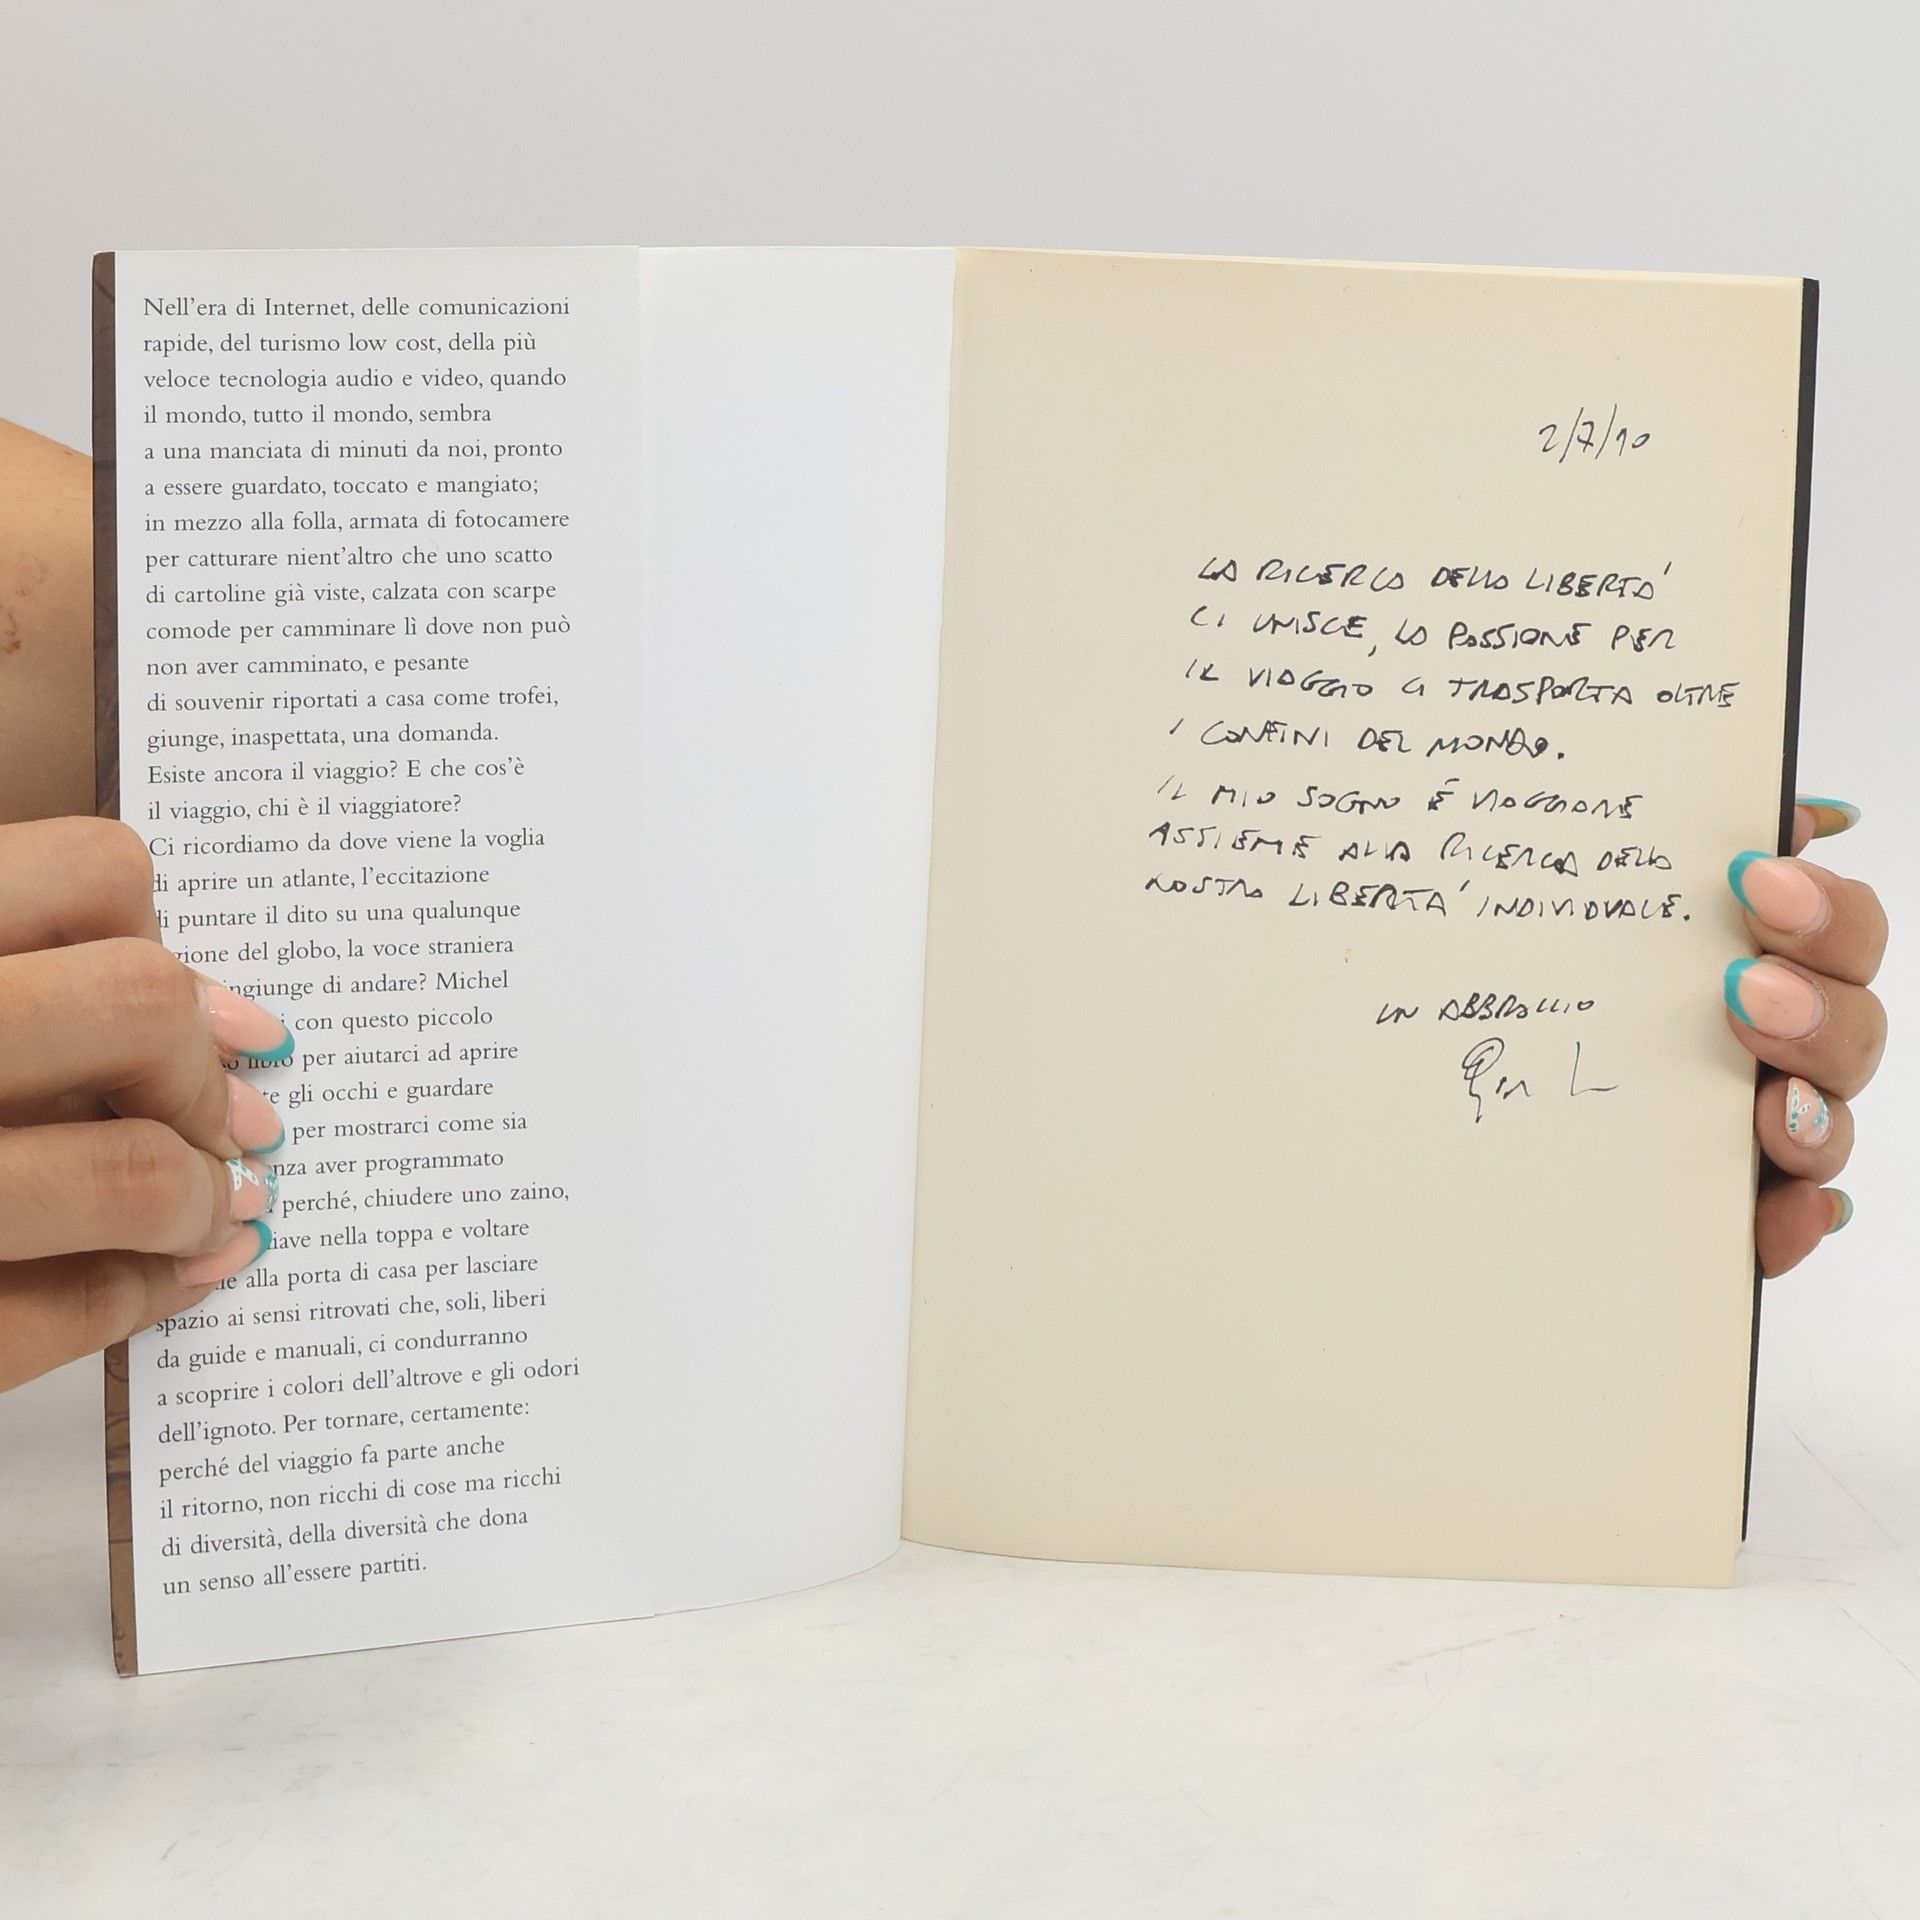 Nell'era di Internet, delle comunicazioni
rapide, del turismo low cost, della più
veloce tecnologia audio e video, quando
il mondo, tutto il mondo, sembra
a una manciata di minuti da noi, pronto
a essere guardato, toccato e mangiato;
in mezzo alla folla, armata di fotocamere
per catturare nient'altro che uno scatto
di cartoline già viste, calzata con scarpe
comode per camminare lì dove non può
non aver camminato, e pesante
di souvenir riportati a casa come trofei,
giunge, inaspettata, una domanda.
Esiste ancora il viaggio? E che cos'è
il viaggio, chi è il viaggiatore?
Ci ricordiamo da dove viene la voglia
di aprire un atlante, l'eccitazione
di puntare il dito su una qualunque
gione del globo, la voce straniera
ingiunge di andare? Michel
con questo piccolo
libro per aiutarci ad aprire
gli occhi e guardare
per mostrarci come sia
nza aver programmato
perché, chiudere uno zaino,
iave nella toppa e voltare
alla porta di casa per lasciare
spazio ai sensi ritrovati che, soli, liberi
da guide e manuali, ci condurranno
a scoprire i colori dell'altrove e gli odori
dell'ignoto. Per tornare, certamente:
perché del viaggio fa parte anche
il ritorno, non ricchi di cose ma ricchi
di diversità, della diversità che dona
un senso all'essere partiti.
2/7/10
LA RICERCA DELLA LIBERTA'
CI UNISCE, LA PASSIONE PER
IL VIAGGIO CI TRASPORTA OLTRE
I CONFINI DEL MONDO.
IL MIO SOGNO È VIAGGIARE
ASSIEME ALLA RICERCA DELLA
NOSTRA LIBERTA' INDIVIDUALE.
UN ABBRACCIO